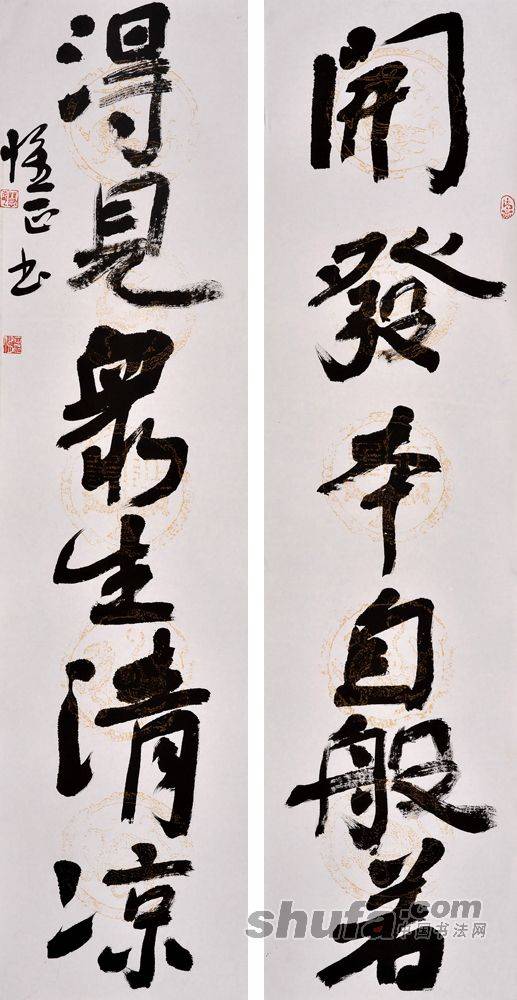 開發本自般若
得見眾生清凉
惟正书
shufa.com
中国书法网